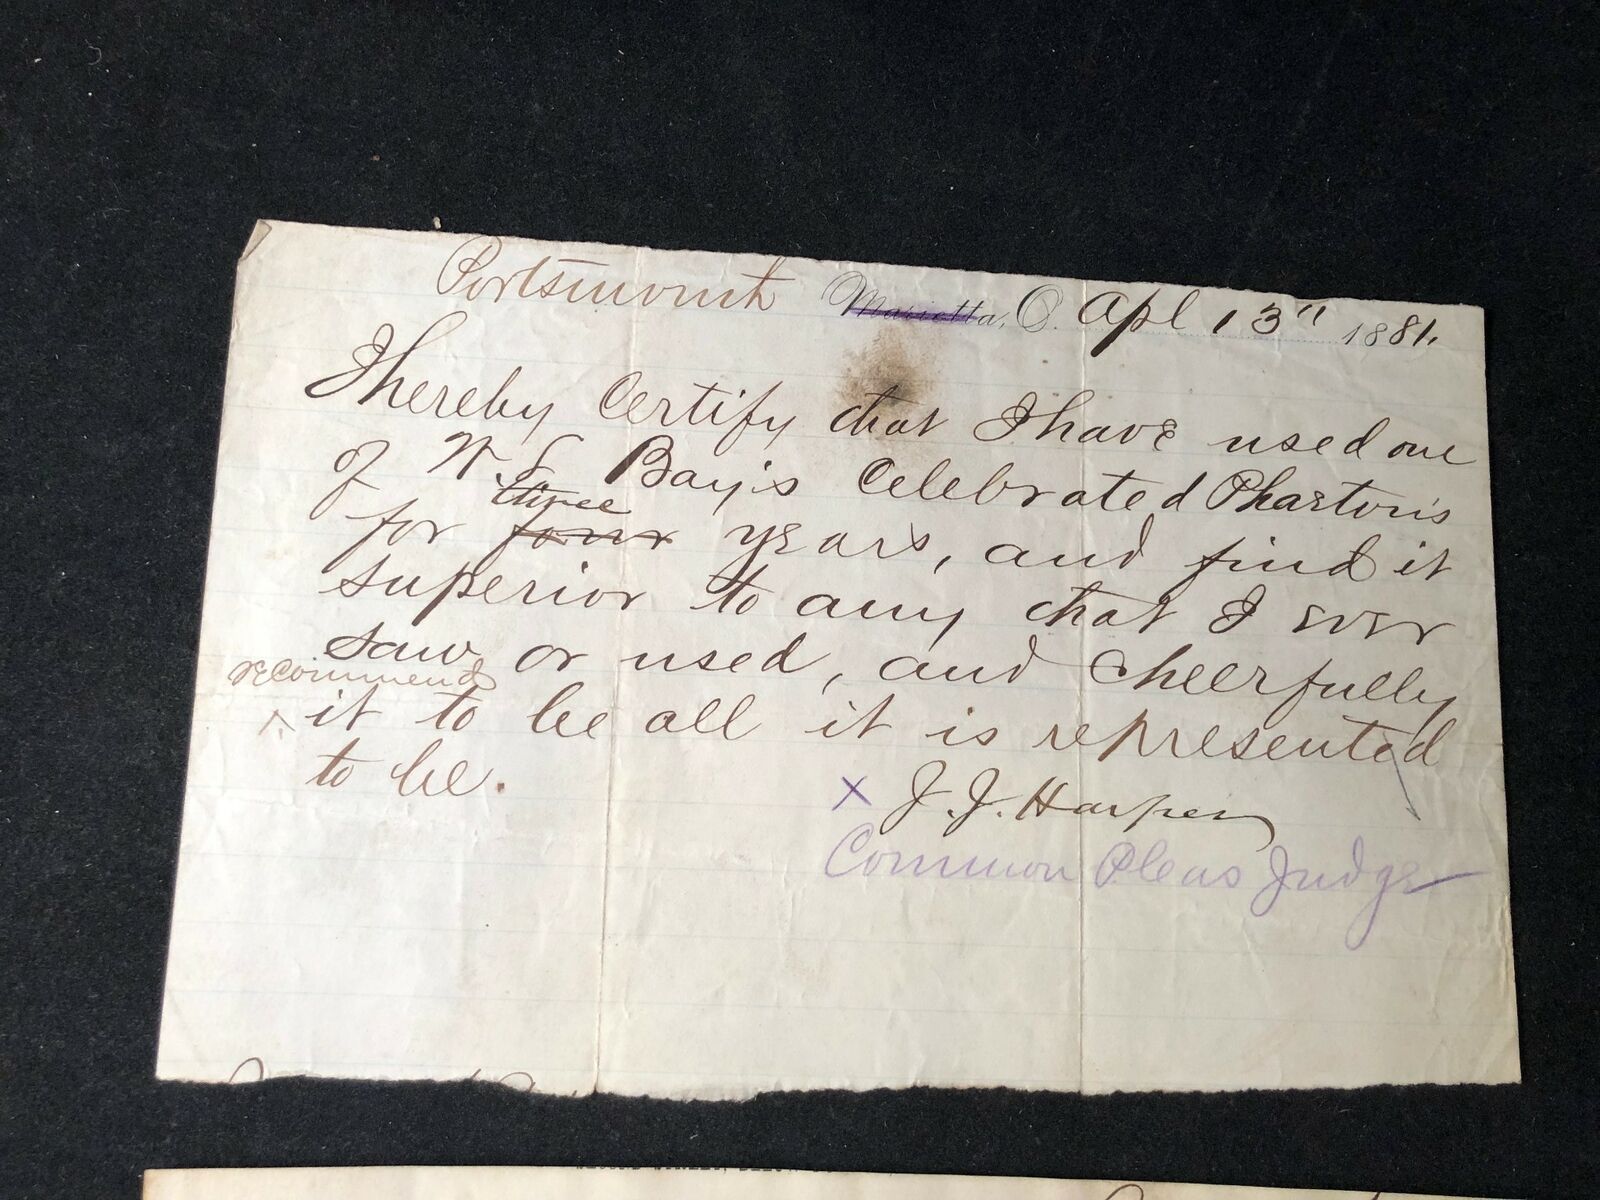 Portsmouth Marietta, O. Apl 13" 1881.
I hereby Certify that I have used one
of W. S. Bay's Celebrated Phaeton's
three
for four years, and find it
superior to any that I ever
saw or used, and Cheerfully
recommend
^ it to be all it is represented
to be.
x J. J. Harper
Common Pleas Judge